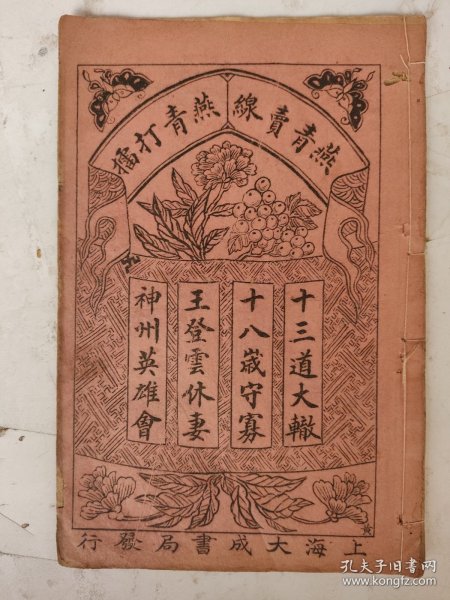 燕青賣線
燕青打擂
十三道大轍
十八歲守寡
王登雲休妻
神州英雄會
上海大成書局發行
孔夫子旧书网
www.kongfz.com